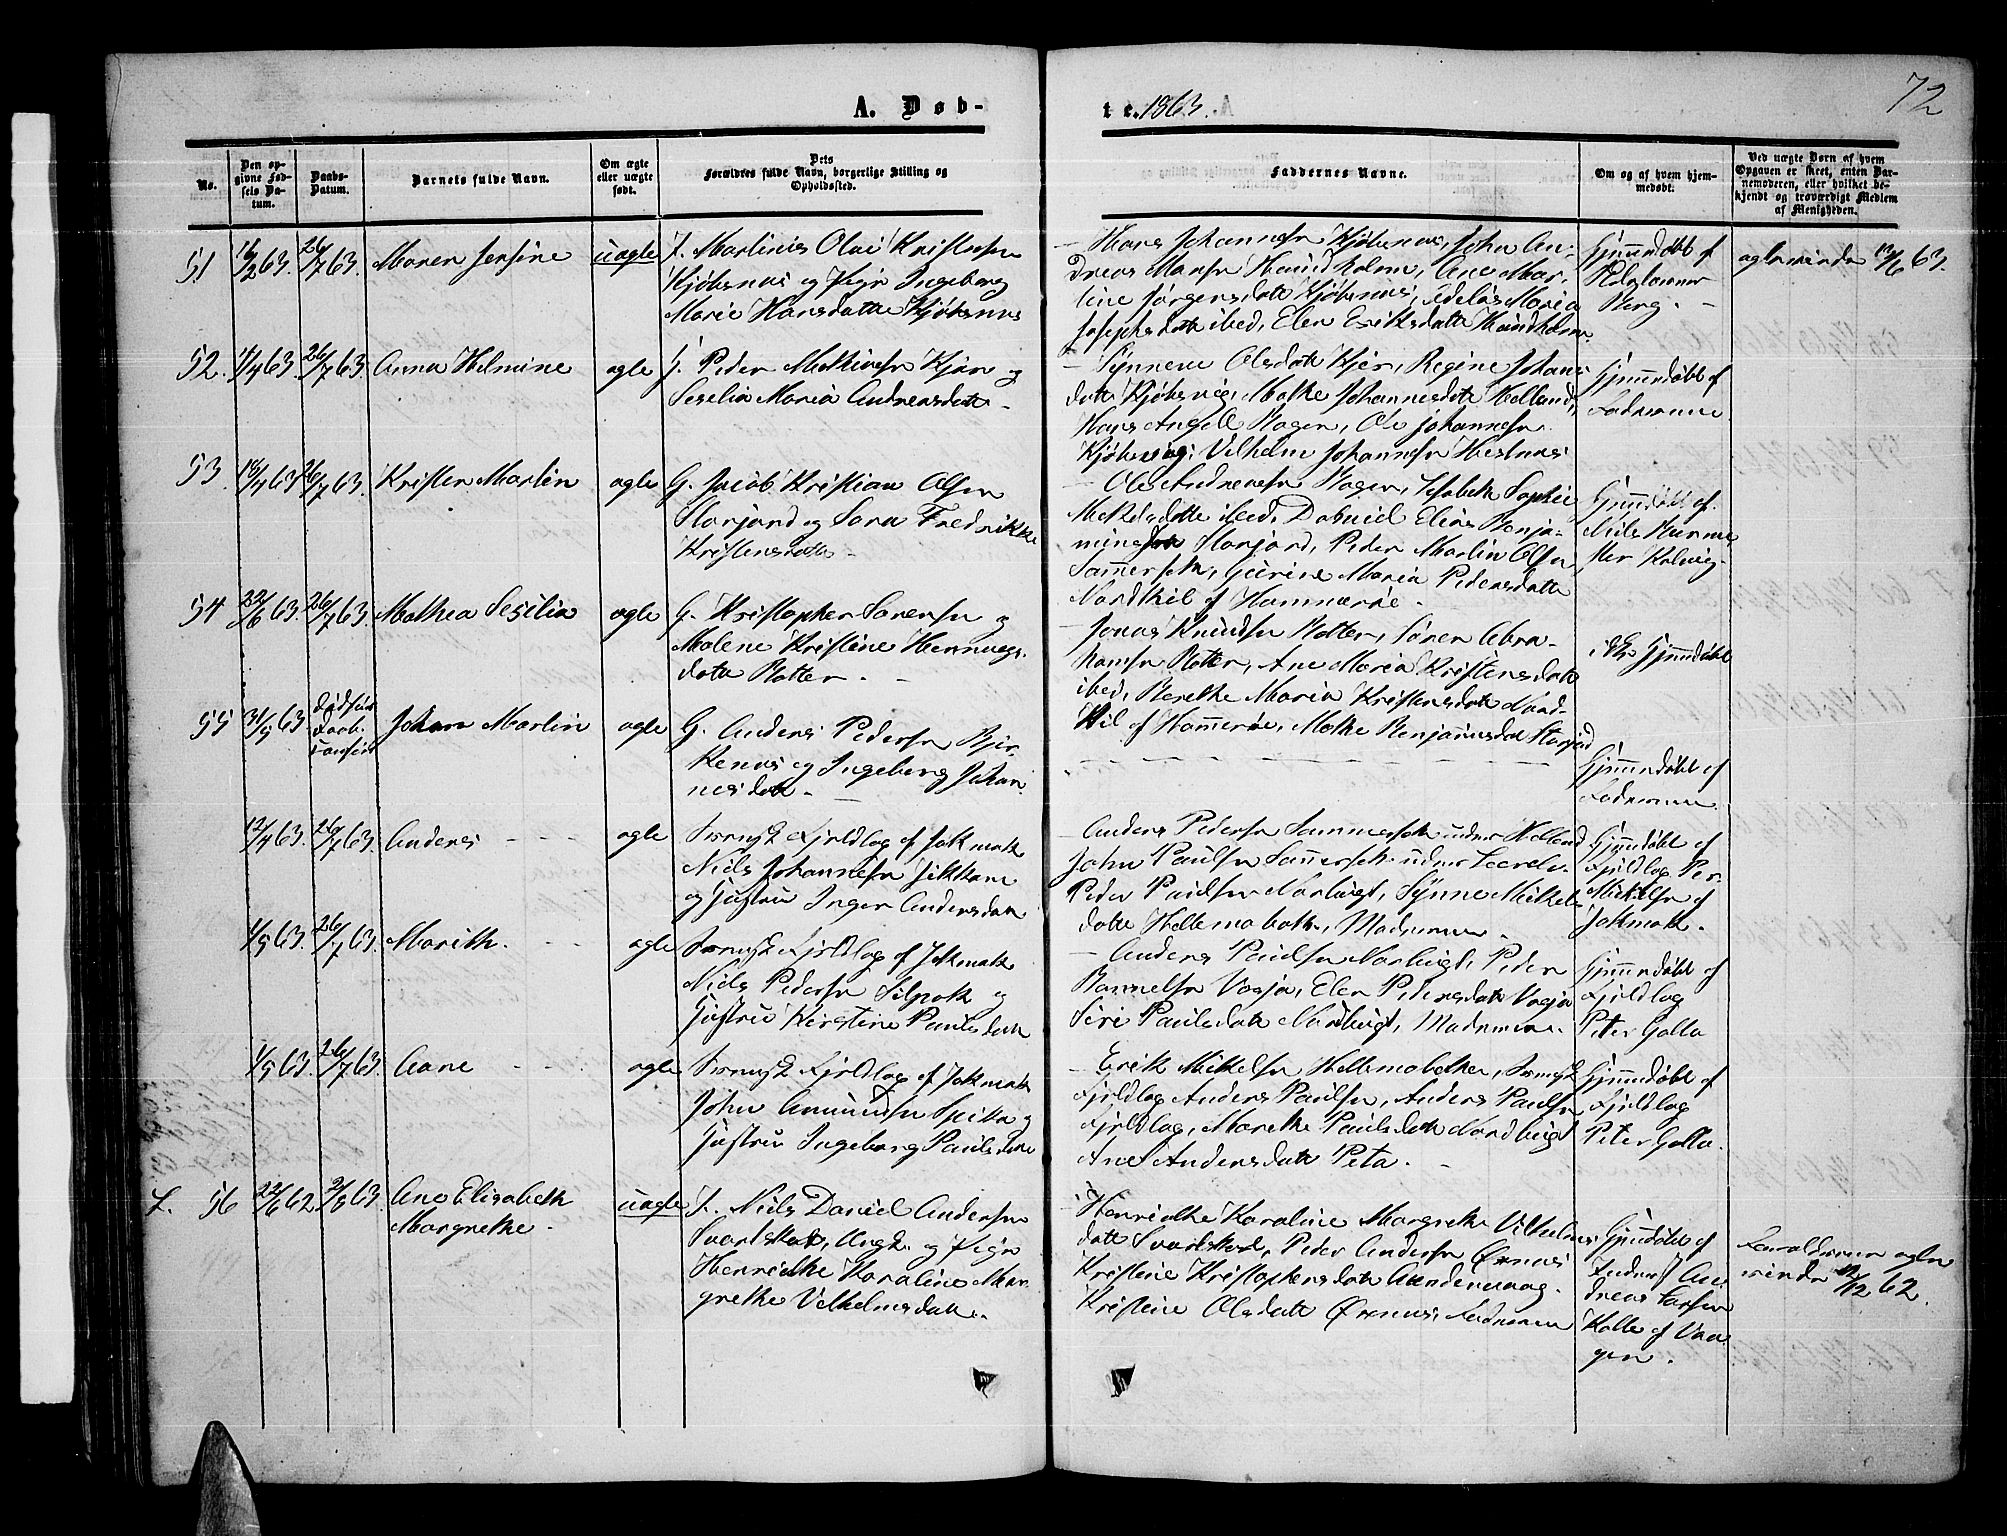 72
A. Døb-
te. 1863.
No.
Den op-
givne Fød-
sels Da-
tum.
Daabs-
Datum.
Barnets fulde Navn.
Om ægte
eller uægte
født.
Dets
Forældres fulde Navn, borgerlige Stilling og
Opholdssted.
Faddernes Navne.
Om og af hvem hjem-
medøbt.
Ved uægte Børn af hvem
Opgaven er skeet, enten Bar-
nemoderen, eller hvilket be-
kjendt og troværdigt Medlem
af Menigheden.
51
16/2 63.
26/7 63.
Maren Jensine
uægte
F. Martinus Olai Kristensen
Kjøbsnæs og Pige Ingeborg
Marie Hansdatter Kjøbsnæs
Hans Johannesen Kjøbsnæs, John An-
dreas Hansen Haundholm, Ane Mar-
tine Jørgensdatt Kjøbsnæs, Maria
Josephsdatt ibed, Elen Eriksdatt Haundholm.
Hjemmedøbt af
Berg.
13/6 63.
52.
1/4 63.
26/7 63.
Anna Helmine
ægte
G. Peder Mathiasen Kjær og
Seselia Maria Andreasdatt
Synneve Olsdatt Kjær, Regine Johans
datt Kjøbsvig, Malke Johannesdatt Helland,
Hans Angell Hagen, Ole Johannesen
Kjøbsvig, Vilhelm Johannesen Hestnæs
Hjemmedøbt af
Faderen
53.
18/4 63
26/7 63.
Kristen Martin
ægte
G. Jacob Kristian Olsen
Storjord og Sara Fredrikke
Kristensdatter
Ole Andreasen Hagen, Elisabeth Sophie
Mekelsdatte ibed, Elias Benja-
minsen Storjord, Peder Martin Olsen
Maria Pedersdatte
Nordkil af Hammerøe.
Hjemmedøbt af
Niels
Kalvig
54
26/7 63.
Mathea Sesilia
ægte
G. Kristopher Sørensen og
Malene Kristine Henningsdatt
Rotter.
Jonas Knudsen Rotter, Søren Abra-
hamsen Rotter, Ane Maria Kristensdatt
ibed, Berethe Maria Kristensdatt Nord-
kil af Hammerøe, Malke Benjaminsdat Storjord
ikke Hjemmedøbt
55
31/5 63.
Johan Martin
ægte
G. Anders Pedersen Bjer-
kenæs og Ingeborg Johan-
nesdatt.
Hjemmedøbt af
Faderen
12/4 63.
26/7 63.
Anders
ægte
Svensk Fjeldlap af Jokmok
Niels Johannesen
og Hustru Inger Andersdatt
Anders Pedersen Sommerset under Helland
John Paulsen Sommerset under
Peder Paulsen Norbugt, Synne Mikkels-
datt Hellemobotn, Moderen.
Hjemmedøbt af
Fjeldlap Per
Mikkelsen af
Jokmok.
1/5 63.
26/7 63.
Marith.
ægte
Svensk Fjeldlap af Jokmok
Niels Pedersen Silpok og
Hustru Kirstine Paulsdatt
Anders Paulsen Norbugt, Peder
Vasja, Elen Pedersdatt Vasja
Siri Paulsdatt Nordbugt, Moderen.
Hjemmedøbt af
Fjeldlap
Peter Galla
1/5 63.
26/7 63.
Aane
ægte
Svensk Fjeldlap af Jokmok
John Amundsen Spika og
Hustru Ingeborg Paulsdatt
Erik Mikkelsen Hellemobotn, Svensk
Fjeldlap Anders Paulsen, Anders Paulsen
Fjeldlap, Marethe Paulsdatt Nordbugt
Ane Andersdatt Peta.
Hjemmedøbt af
Fjeldlap
Peter Galla.
56
2/8 63.
Ane Elisabeth
Margrethe
uægte
F. Niels Daniel Andersen
Svartskot, Ungk. og Pige
Henrikke Karoline Mar-
grethe Vilhelmsdatt.
Henrikke Karoline Margrethe Vilhelms
datt Svartskot, Peder Andersen Ørnes
Kristine Kristophersdatt
Kristine Olsdatt Ørenæs, Faderen
Hjemmedøbt af
An-
dreas Larsen
Kalle af Vaa-
gen.
Forældrene
12/12 62.